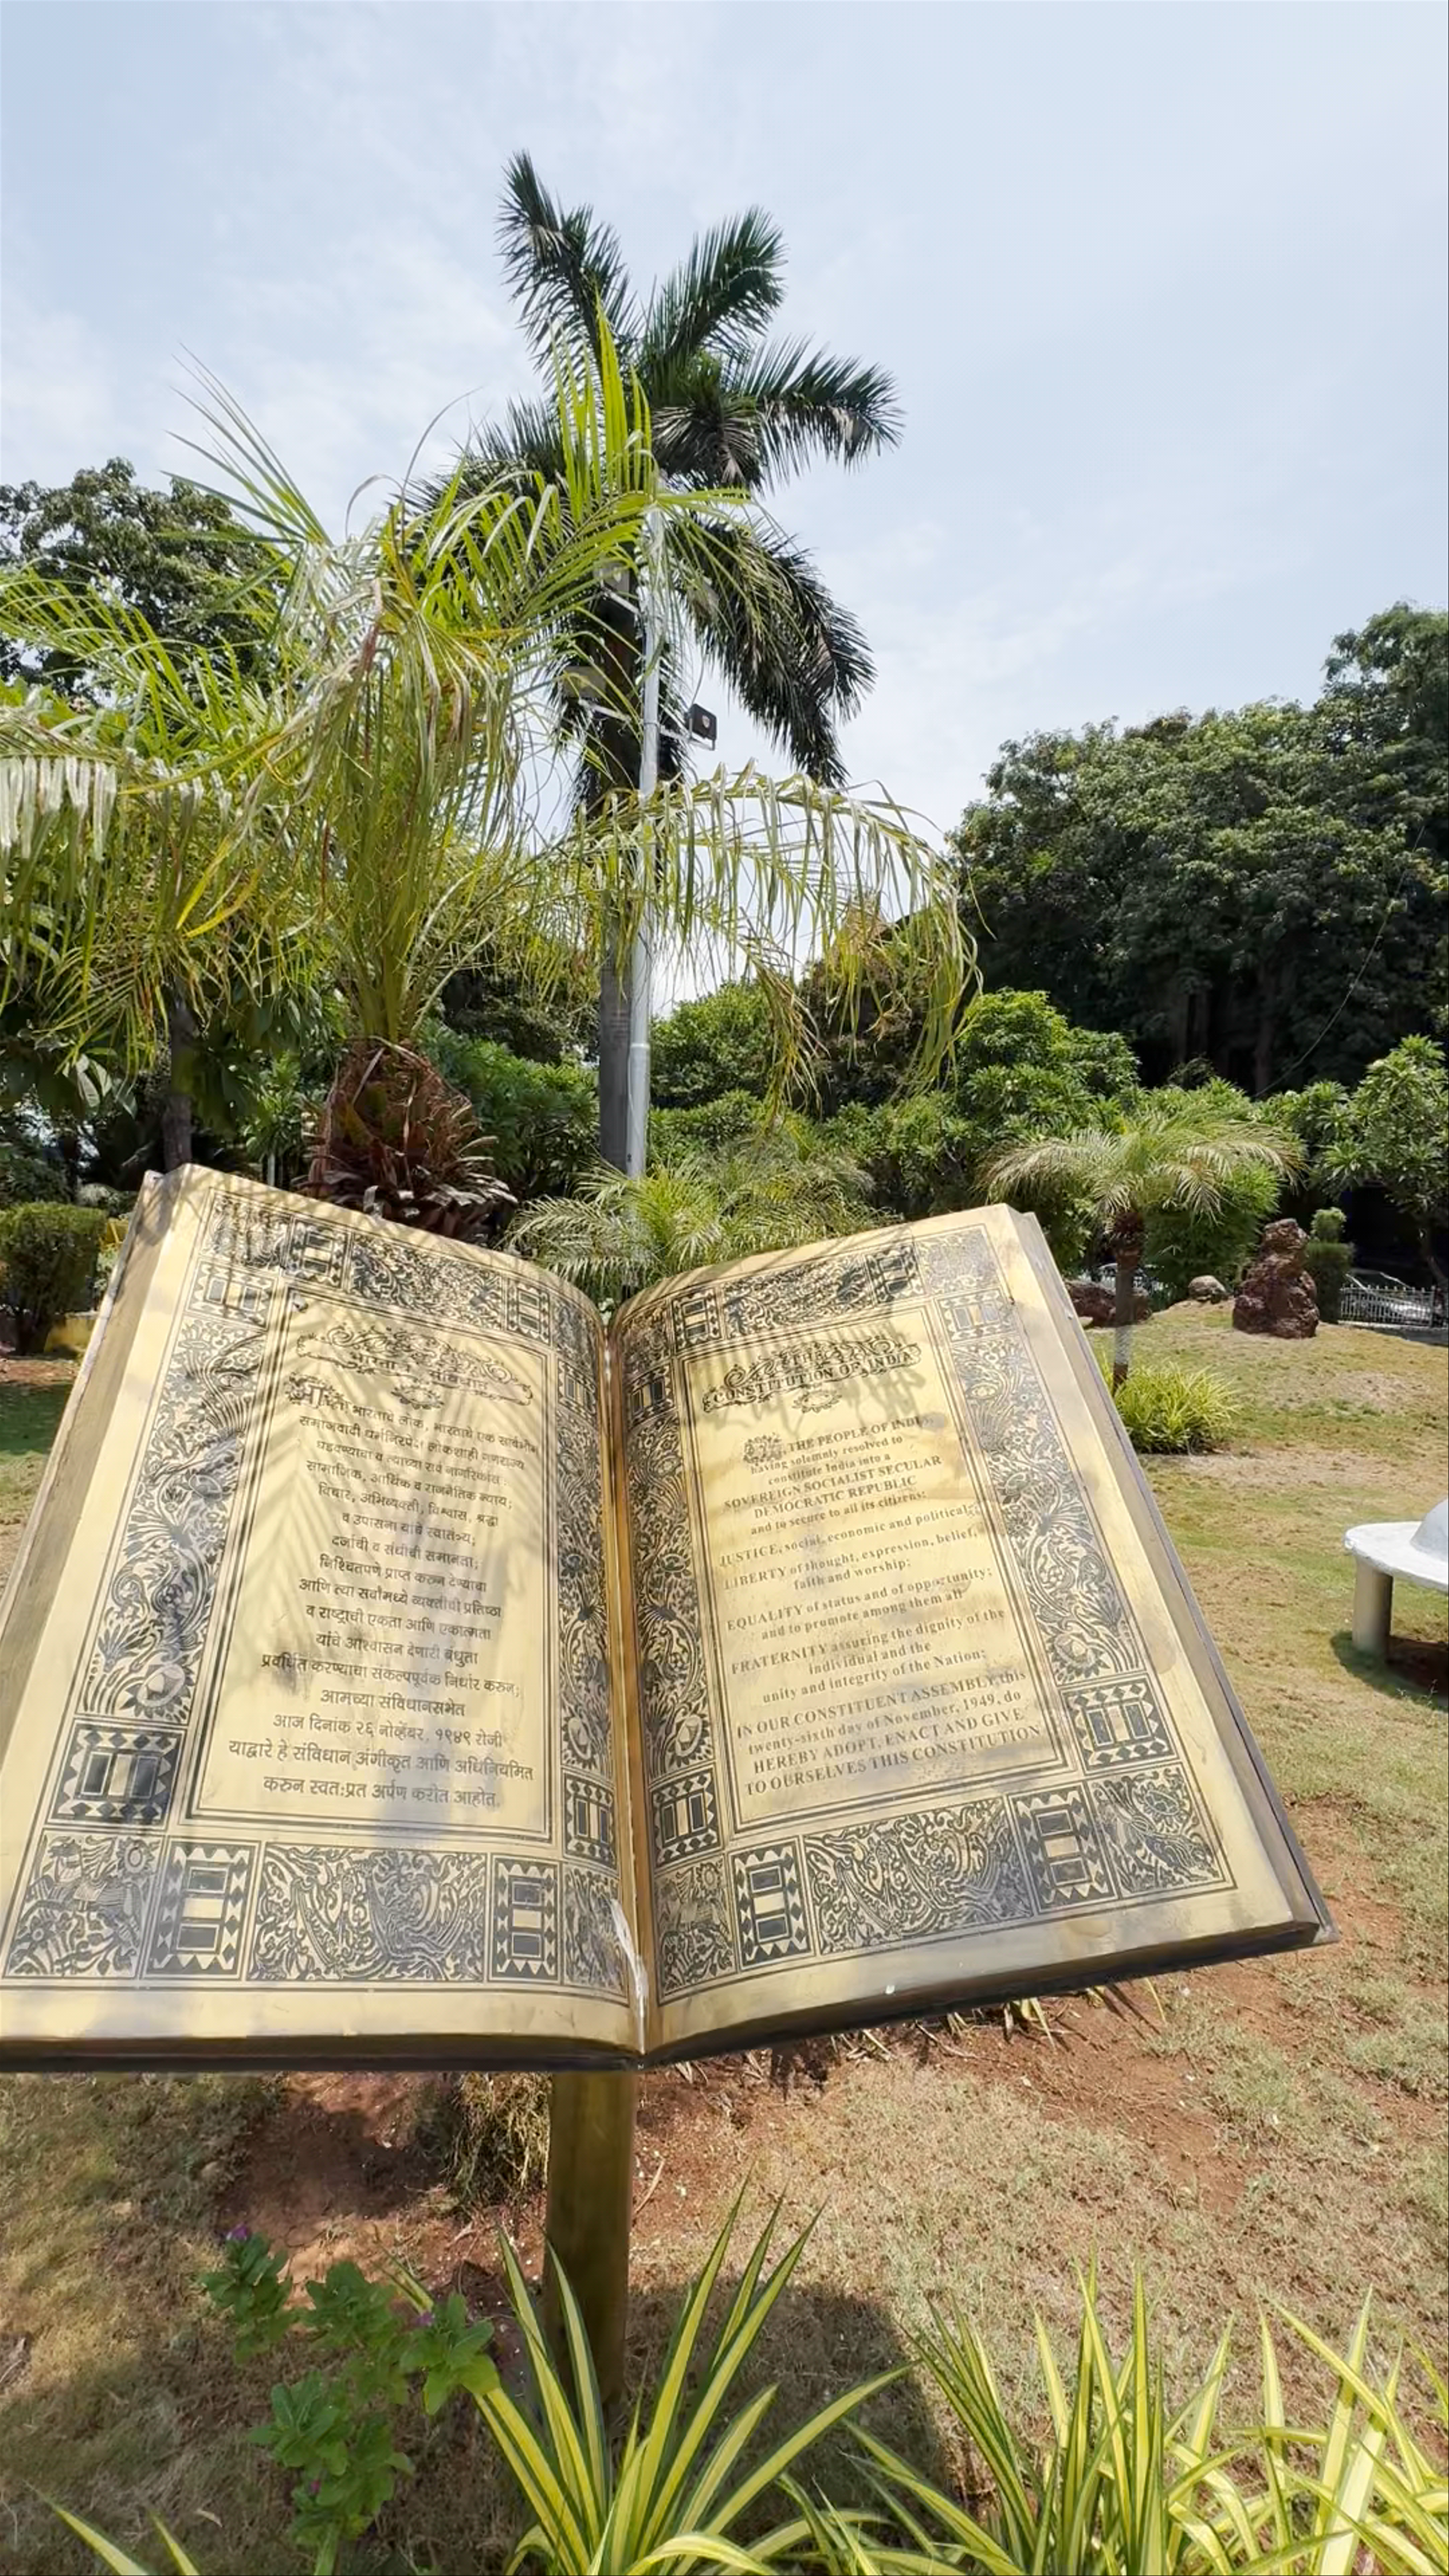 भारताचे संविधान
आम्ही, भारताचे लोक, भारताचे एक सार्वभौम
समाजवादी धर्मनिरपेक्ष लोकशाही गणराज्य
घडवण्याचा व त्याच्या सर्व नागरिकांस :
सामाजिक, आर्थिक व राजनैतिक न्याय;
विचार, अभिव्यक्ती, विश्वास, श्रद्धा
व उपासना यांचे स्वातंत्र्य;
दर्जाची व संधीची समानता;
निश्चितपणे प्राप्त करुन देण्याचा
आणि त्या सर्वांमध्ये व्यक्तीची प्रतिष्ठा
व राष्ट्राची एकता आणि एकात्मता
यांचे आश्वासन देणारी बंधुता
प्रवर्धित करण्याचा संकल्पपूर्वक निर्धार करुन;
आमच्या संविधानसभेत
आज दिनांक २६ नोव्हेंबर, १९४९ रोजी
याद्वारे हे संविधान अंगीकृत आणि अधिनियमित
करुन स्वत:प्रत अर्पण करीत आहोत.
THE
CONSTITUTION OF INDIA
WE, THE PEOPLE OF INDIA,
having solemnly resolved to
constitute India into a
SOVEREIGN SOCIALIST SECULAR
DEMOCRATIC REPUBLIC
and to secure to all its citizens:
JUSTICE, social, economic and political;
LIBERTY of thought, expression, belief,
faith and worship;
EQUALITY of status and of opportunity;
and to promote among them all
FRATERNITY assuring the dignity of the
individual and the
unity and integrity of the Nation;
IN OUR CONSTITUENT ASSEMBLY this
twenty-sixth day of November, 1949, do
HEREBY ADOPT, ENACT AND GIVE
TO OURSELVES THIS CONSTITUTION